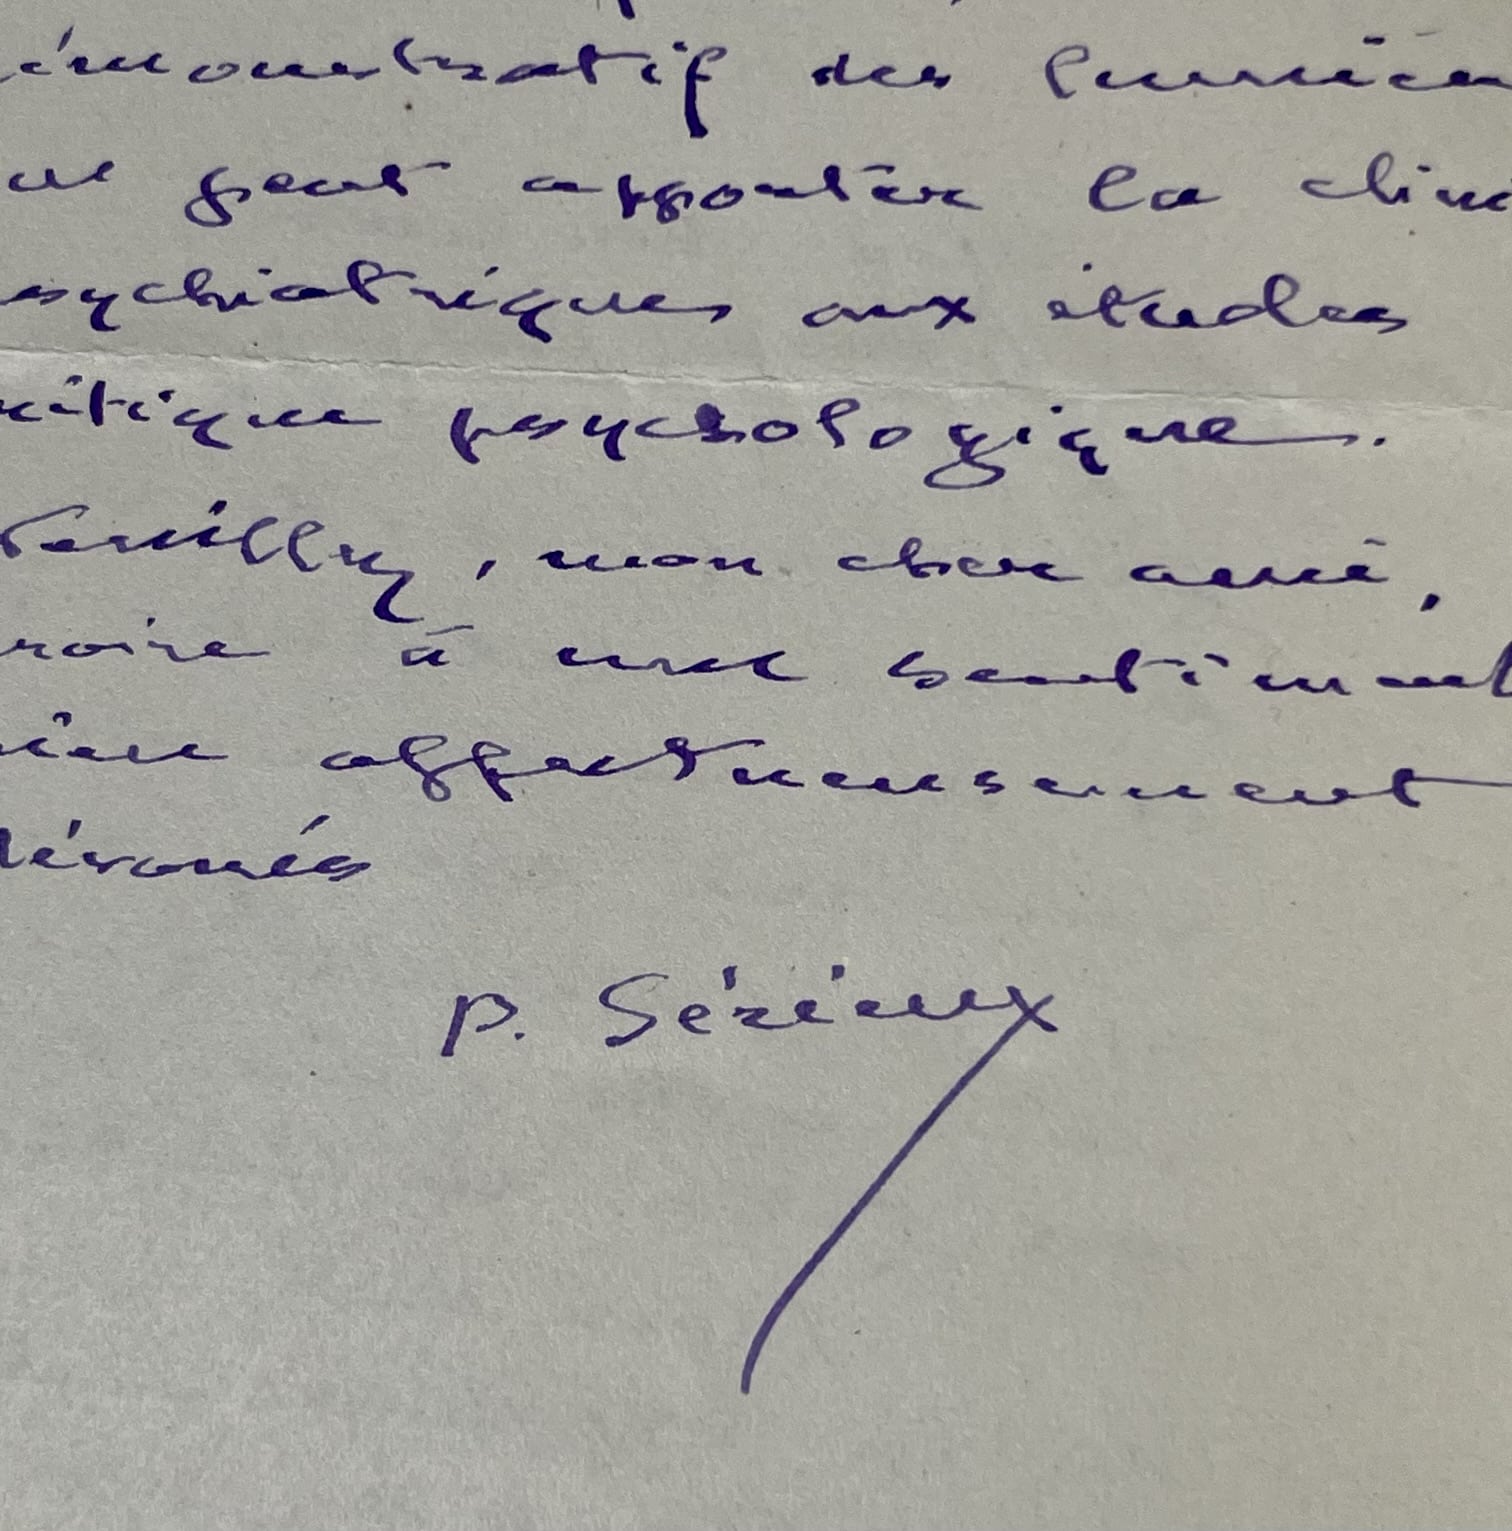 émonstratif des lumièr
ue peut apporter la clini
psychiatriques aux études
ritique psychologique.
Veuillez, mon cher ami,
roire à mes sentiment
ien affectueusement
dévoués
P. Sérieux